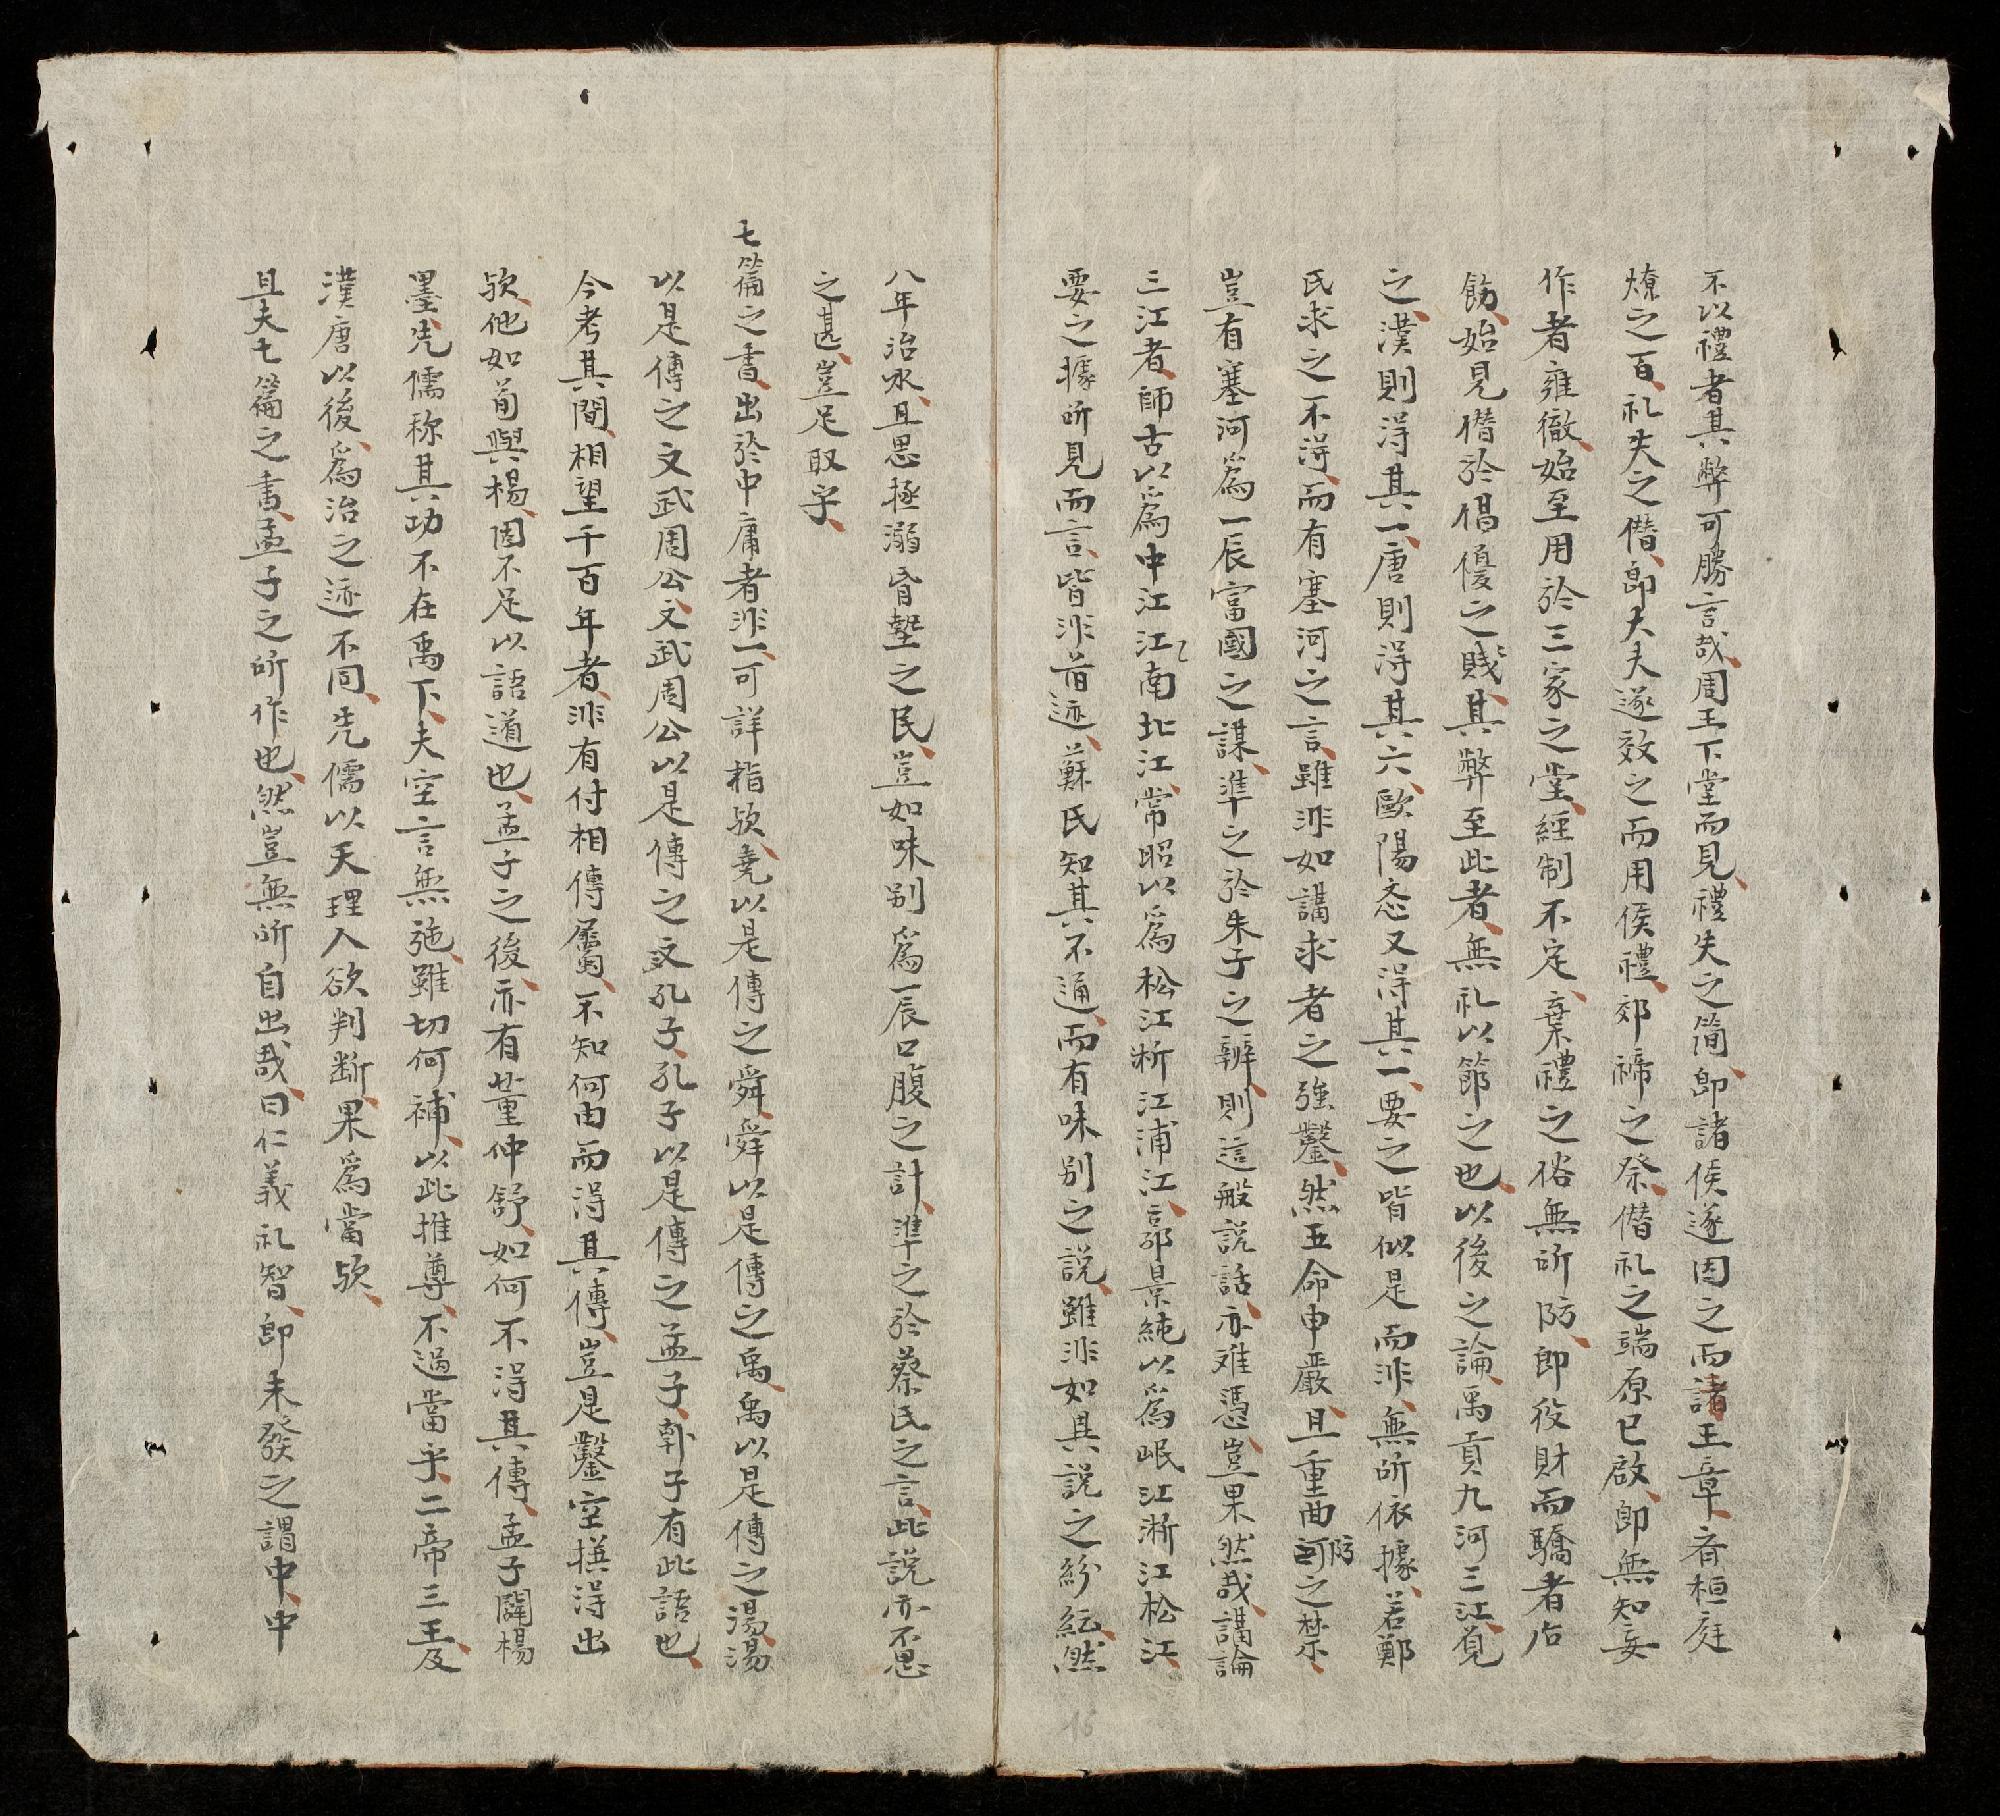 不以禮者其弊可勝言哉周王下堂而見禮失之簡即諸侯遂因之而諸王章者桓庭
燎之百礼失之僭即大夫遂效之而用侯禮郊禘之祭僭礼之端原已啟即無知妄
作者雍徹始至用於三家之堂經制不定棄禮之俗無所防即役財而驕者占
飭始見僭於倡優之賤其弊至此者無礼以節之也以後之論禹貢九河三江覓
之漢則淂其一唐則淂其六歐陽忞又淂其一要之皆似是而非無所依據若鄭
氏求之不淂而有塞河之言雖非如講求者之強鑿然五命申嚴且重曲防之禁
豈有塞河為一辰富國之謀準之於朱子之辨則這般説話亦难憑豈果然哉講論
三江者師古以爲中江江南北江常昭以爲松江浙江浦江郭景純以爲岷江浙江松江
要之據所見而言皆非苗迹蘇氏知其不通而有味别之説雖非如其説之紛紜然
八年治水且思拯溺昏墊之民豈如味别爲一辰口腹之計準之於蔡氏之言此説亦不思
之甚豈足取乎
七篇之書出於中庸者非一可詳指欤堯以是傳之舜舜以是傳之禹禹以是傳之湯湯
以是傳之文武周公文武周公以是傳之孔子孔子以是傳之孟子郭子有此語也
今考其間相望千百年者非有付相傳屬不知何由而淂其傳豈是鑿空撰淂出
欤他如荀與楊固不足以語道也孟子之後亦有董仲舒如何不淂其傳孟子闢楊
墨先儒称其功不在禹下夫空言無施雖切何補以此推尊不過當乎二帝三王及
漢唐以後爲治之迹不同先儒以天理人欲判断果爲當欤
且夫七篇之書孟子之所作也然豈無所自出哉曰仁義礼智即未發之謂中中